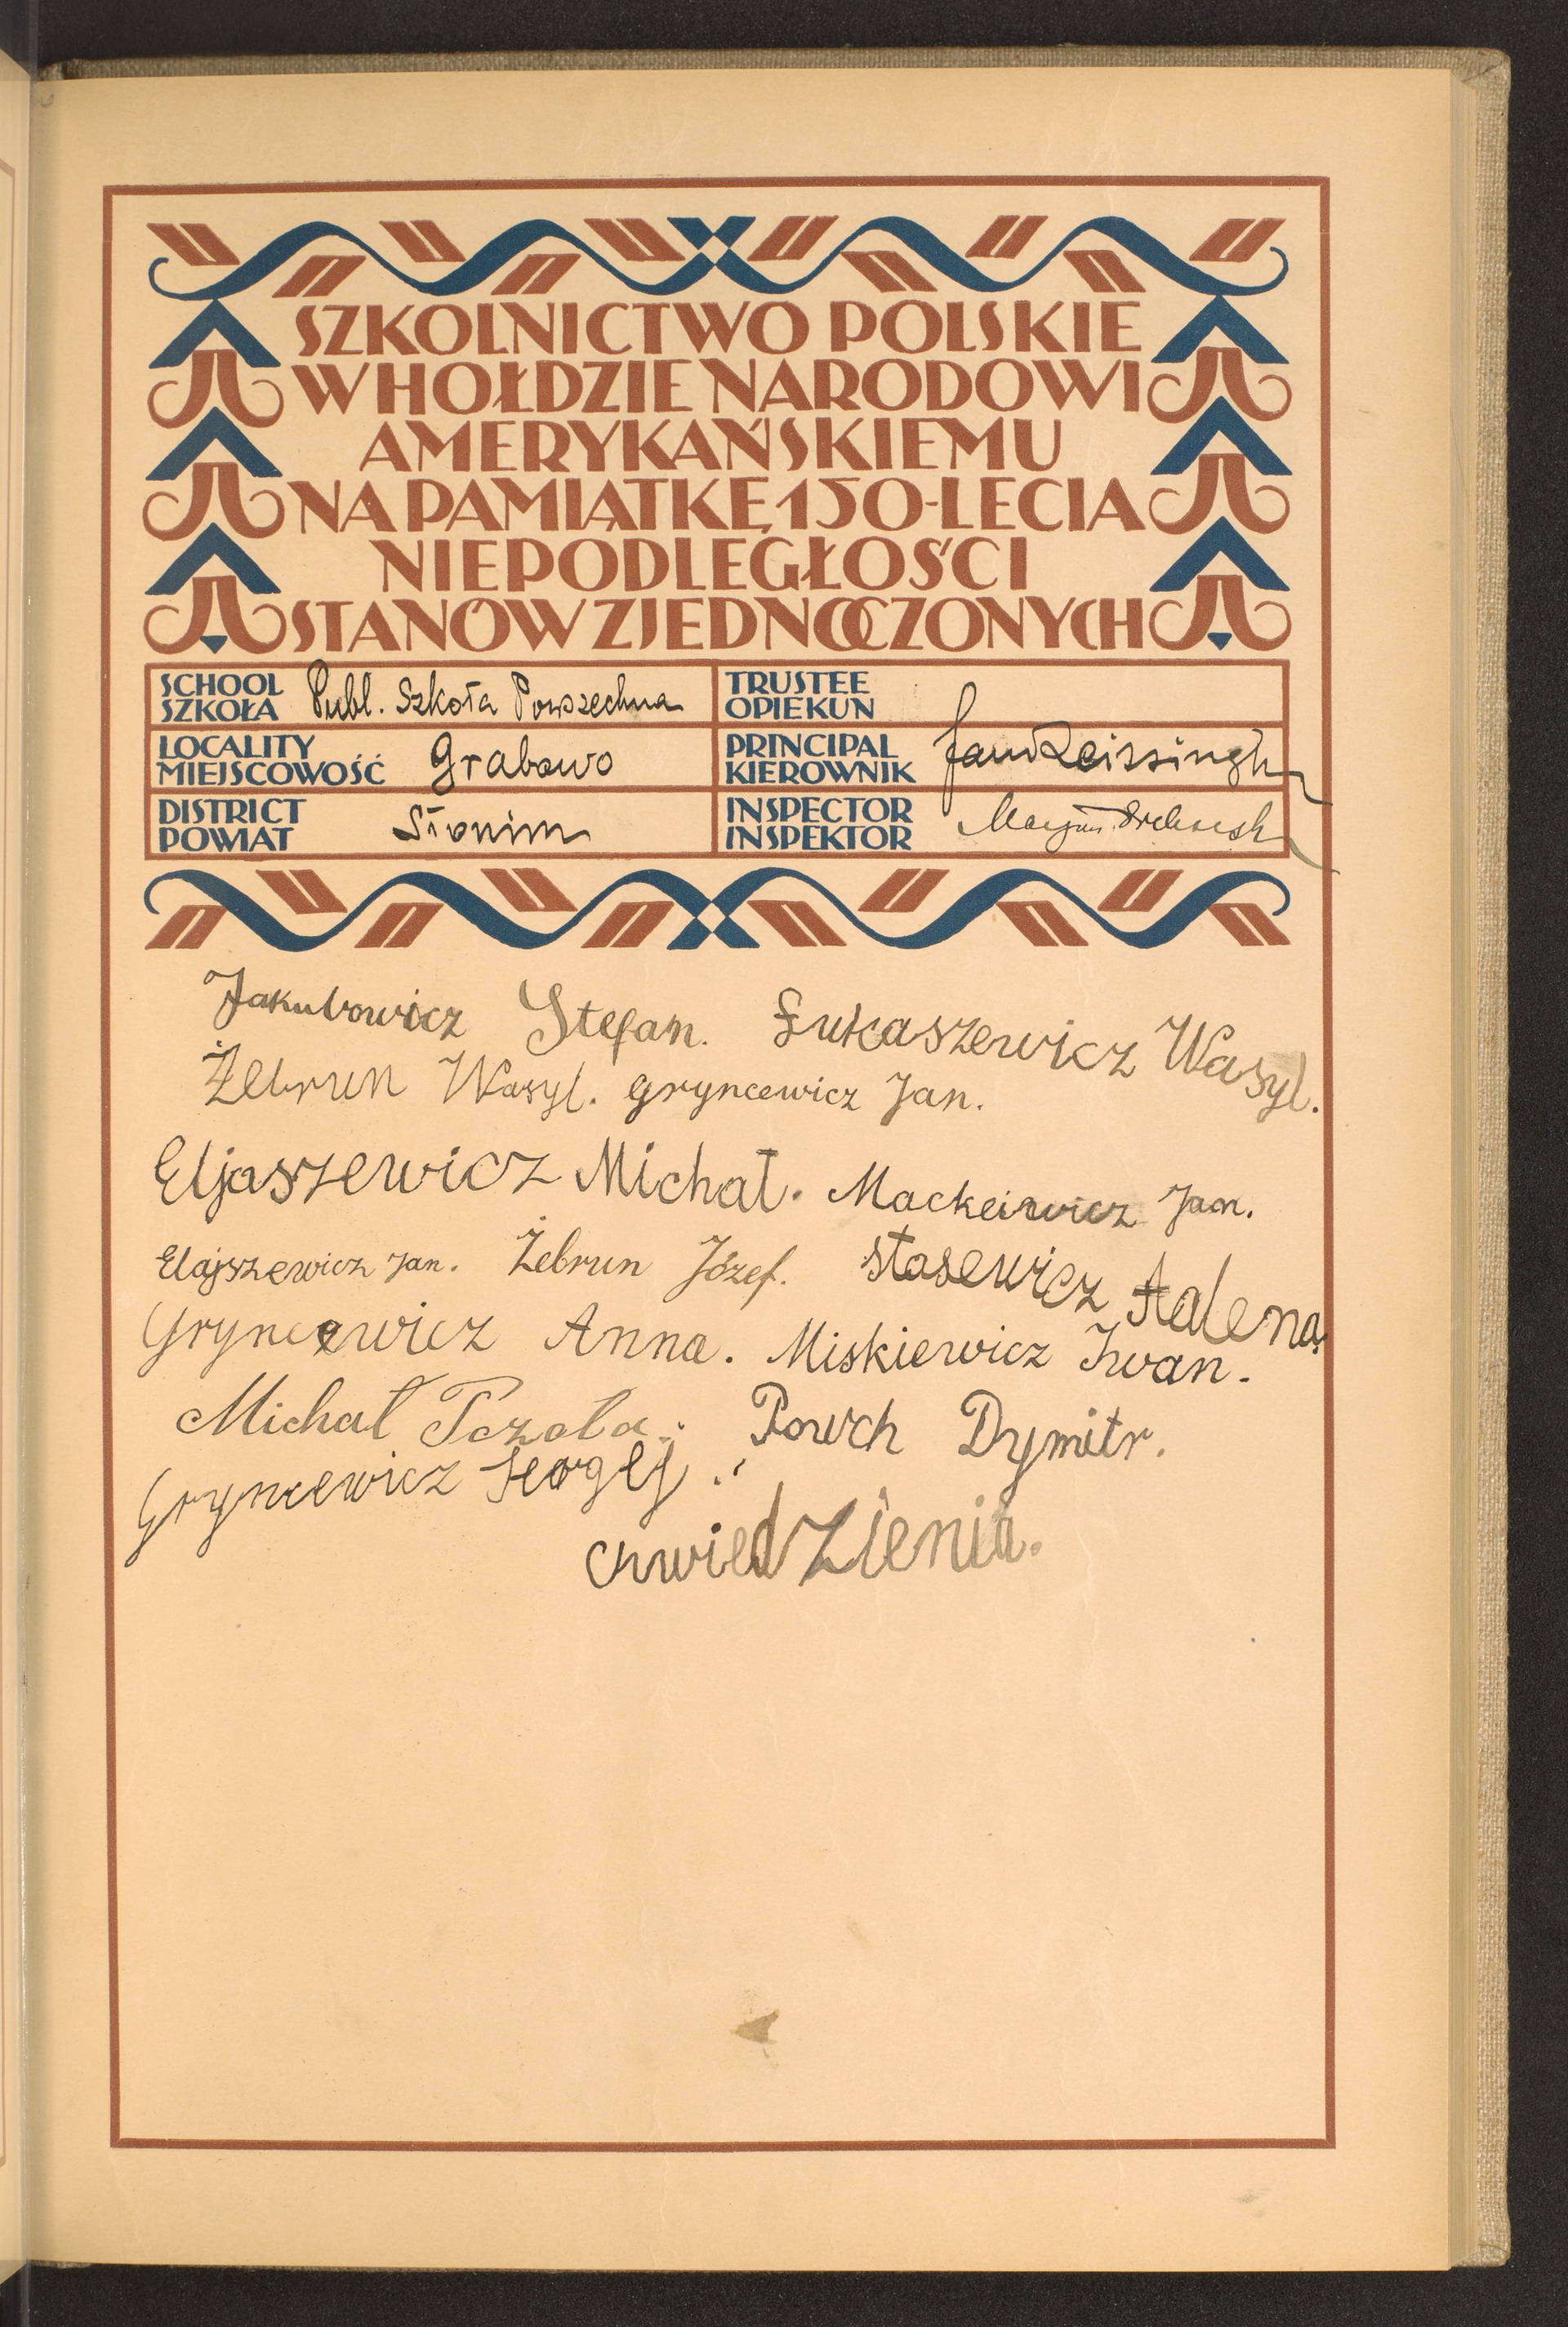 SZKOLNICTWO POLSKIE
W HOŁDZIE NARODOWI
AMERYKAŃSKIEMU
NA PAMIĄTKĘ 150-LECIA
NIEPODLEGŁOŚCI
STANÓW ZJEDNOCZONYCH
SCHOOL
SZKOŁA
Publ. Szkoła Powszechna
TRUSTEE
OPIEKUN
LOCALITY
MIEJSCOWOŚĆ
Grabowo
PRINCIPAL
KIEROWNIK
DISTRICT
POWIAT
Słonim
INSPECTOR
INSPEKTOR
Jakubowicz Stefan. Łukaszewicz Wasyl.
Żebrun Wasyl. Gryncewicz Jan.
Eljaszewicz Michał. Mackeiwicz Jan.
Elajszewicz Jan. Żebrun Józef. Stasewicz Halena.
Gryncewicz Anna. Miskiewicz Iwan.
Michał Pczoła. Powch Dymitr.
Gryncewicz